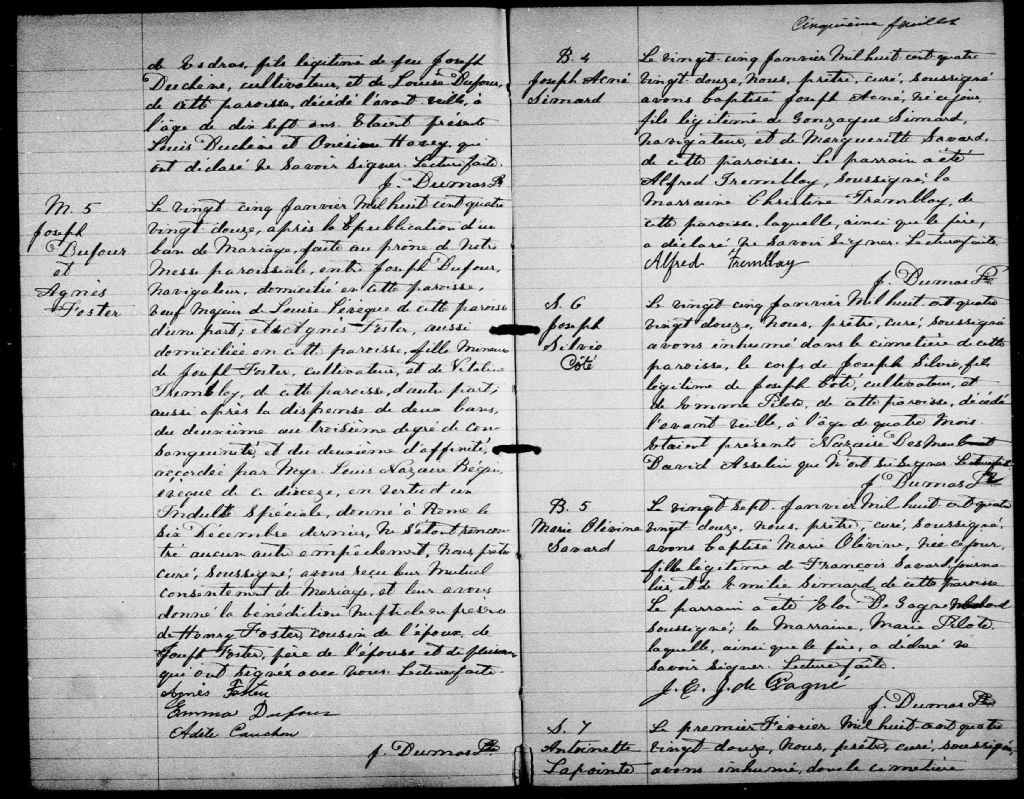 de Esdras, fils légitime de feu Joseph
Duchene, cultivateur, et de Louise Dufour,
de cette paroisse, décédé l'avant veille, à
l'âge de dix sept ans. Etaient présents
Louis Duchene et Onésime Harvey, qui
ont déclaré ne savoir signer. Lecture faite.
J. Dumas Ptr
M. 5
Joseph
Dufour
et
Agnès
Foster
Le vingt cinq Janvier Mil huit cent quatre
vingt douze, après la publication d'un
ban de Mariage, faite au prône de Notre
Messe paroissiale, entre Joseph Dufour,
Navigateur, domicilié en cette paroisse,
veuf Majeur de Louise Lévêque de cette paroisse
d'une part; et Agnès Foster, aussi
domiciliée en cette paroisse, fille Mineure
de Joseph Foster, cultivateur, et de Vitaline
Tremblay, de cette paroisse, d'autre part;
aussi après la dispense de deux bans,
du deuxième au troisième degré de con
sanguinité, et du deuxième d'affinité,
accordée par Mgr. Louis Nazaire Bégin,
évêque de ce diocèze, en vertu d'un
Indulte Spéciale, donné à Rome le
Six Décembre dernier, ne s'étant rencon-
tré aucun autre empêchement, Nous prêtre
curé, soussigné, avons reçu leur Mutuel
consentement de Mariage, et leur avons
donné la bénédiction Nuptiale en présence
de Henry Foster, cousin de l'époux, de
Joseph Foster, père de l'épouse et de plusieurs
qui ont signés avec nous. Lecture faite.
Agnès Foster
Emma Dufour
Adèle Cauchon
J. Dumas Ptr.
Cinquième feuillet
B. 4
Joseph Acné
Simard
Le vingt cinq Janvier Mil huit cent quatre
vingt douze, Nous, prêtre, curé, soussigné
avons baptisé Joseph Acné, né ce jour,
fils légitime de Gonzague Simard,
Navigateur, et de Marguerite Savard,
de cette paroisse. Le parrain a été
Alfred Tremblay, soussigné; la
Marraine Christine Tremblay, de
cette paroisse, laquelle, ainsi que le père,
a déclaré ne savoir signer. Lecture faite.
Alfred Tremblay
J. Dumas Ptr
S. 6
Joseph
Silvio
Côté
Le vingt cinq Janvier Mil huit cent quatre
vingt douze, Nous, prêtre, curé, soussigné
avons inhumé dans le cimetière de cette
paroisse, le corps de Joseph Silvio, fils
légitime de Joseph Côté, cultivateur, et
de Emma Pilote, de cette paroisse, décédé
l'avant veille, à l'âge de quatre Mois.
Etaient présents Nazaire Desmeules et
David Asselin qui n'ont su signer Lecture faite
J. Dumas Ptr
B. 5
Marie Olévine
Savard
Le vingt sept Janvier Mil huit cent quatre
vingt douze, nous, prêtre, curé, soussigné,
avons baptisé Marie Olévine, Née ce jour,
fille légitime de François Savard, journa
lier, et de Emilie Simard de cette paroisse
Le parrain a été Eloi De Gagné
soussigné; la Marraine, Marie Pilote,
laquelle, ainsi que le père, a déclaré ne
savoir signer. Lecture faite.
J. E. J. de Gagné
J. Dumas Ptr
S. 7
Antoinette
Lapointe
Le premier Février Mil huit cent quatre
vingt douze, Nous, prêtre, curé, soussigné,
avons inhumé, dans le cimetière